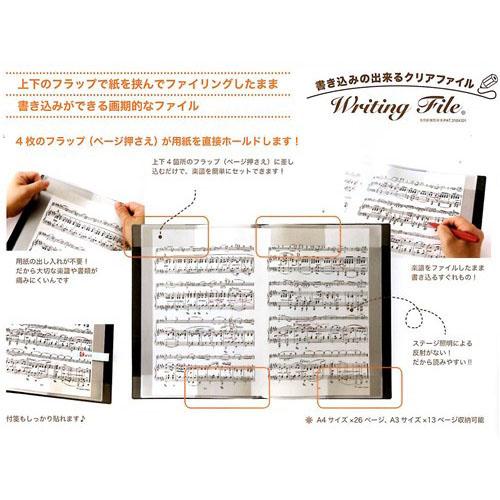 上下のフラップで紙を挟んでファイリングしたまま
書き込みができる画期的なファイル
書き込みの出来るクリアファイル
Writing File®
4枚のフラップ（ページ押さえ）が用紙を直接ホールドします！
上下4箇所のフラップ（ページ押さえ）に差し
込むだけで、楽譜を簡単にセットできます！
用紙の出し入れが不要！
だから大切な楽譜や書類が
痛みにくいんです
楽譜をファイルしたまま
書き込るすぐれもの！
ステージ照明による
反射がない！
だから読みやすい!!
付箋もしっかり貼れます♪
※ A4サイズ×26ページ、A3サイズ×13ページ収納可能